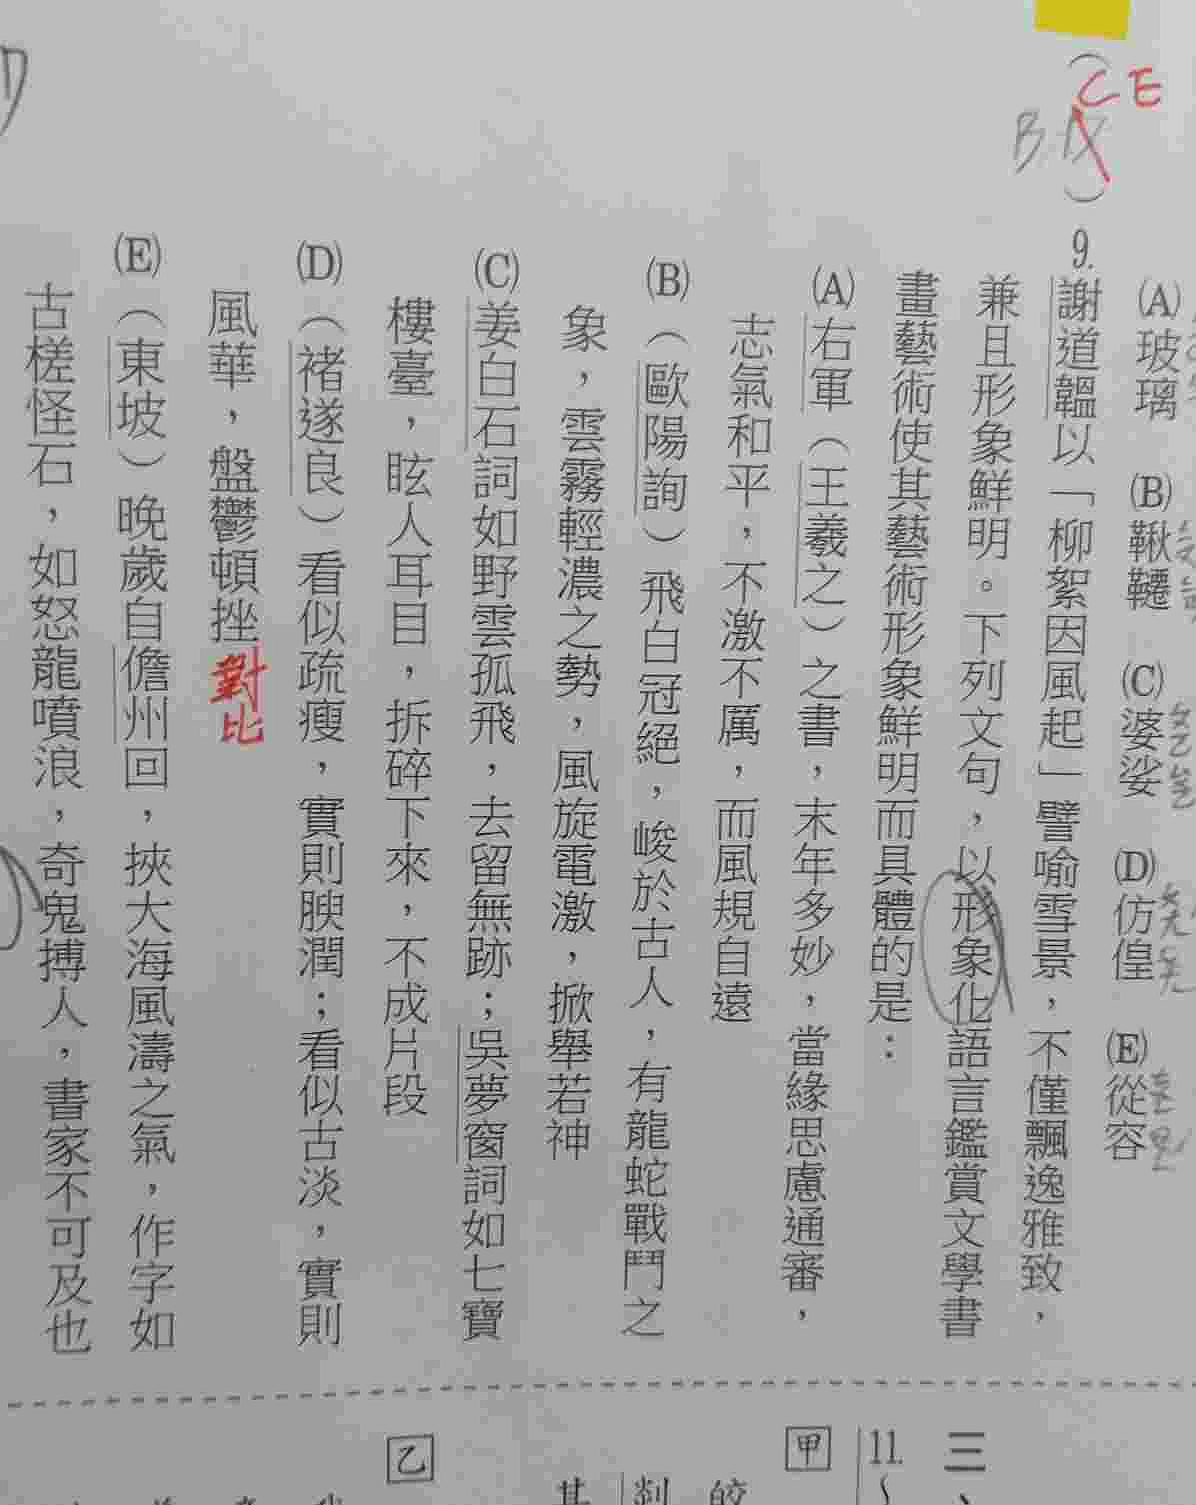 C E
B
(A)玻璃 (B)鞦韆 (C)婆娑 (D)仿偟 (E)從容
9. 謝道韞以「柳絮因風起」譬喻雪景，不僅飄逸雅致，
兼且形象鮮明。下列文句，以形象化語言鑑賞文學書
畫藝術使其藝術形象鮮明而具體的是：
(A)右軍（王羲之）之書，末年多妙，當緣思慮通審，
志氣和平，不激不厲，而風規自遠
(B)（歐陽詢）飛白冠絕，峻於古人，有龍蛇戰鬥之
象，雲霧輕濃之勢，風旋電激，掀舉若神
(C)姜白石詞如野雲孤飛，去留無跡；吳夢窗詞如七寶
樓臺，眩人耳目，拆碎下來，不成片段
(D)（褚遂良）看似疏瘦，實則腴潤；看似古淡，實則
風華，盤鬱頓挫 對比
(E)（東坡）晚歲自儋州回，挾大海風濤之氣，作字如
古槎怪石，如怒龍噴浪，奇鬼搏人，書家不可及也
三、
11.
甲
乙